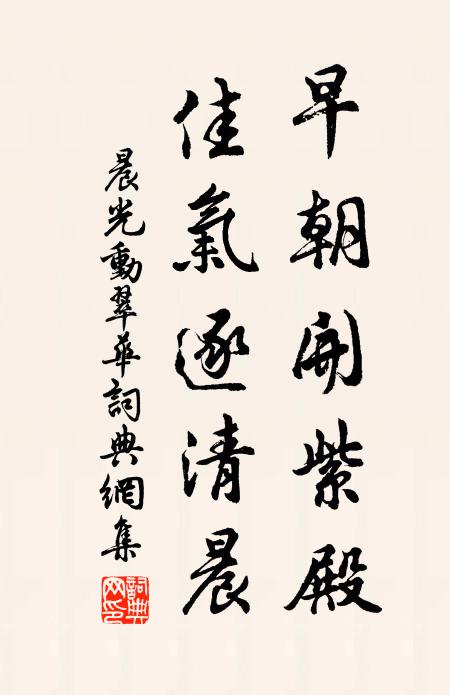 早朝開紫殿
佳氣逐清晨
晨光動翠華詞典網集
詞典網印